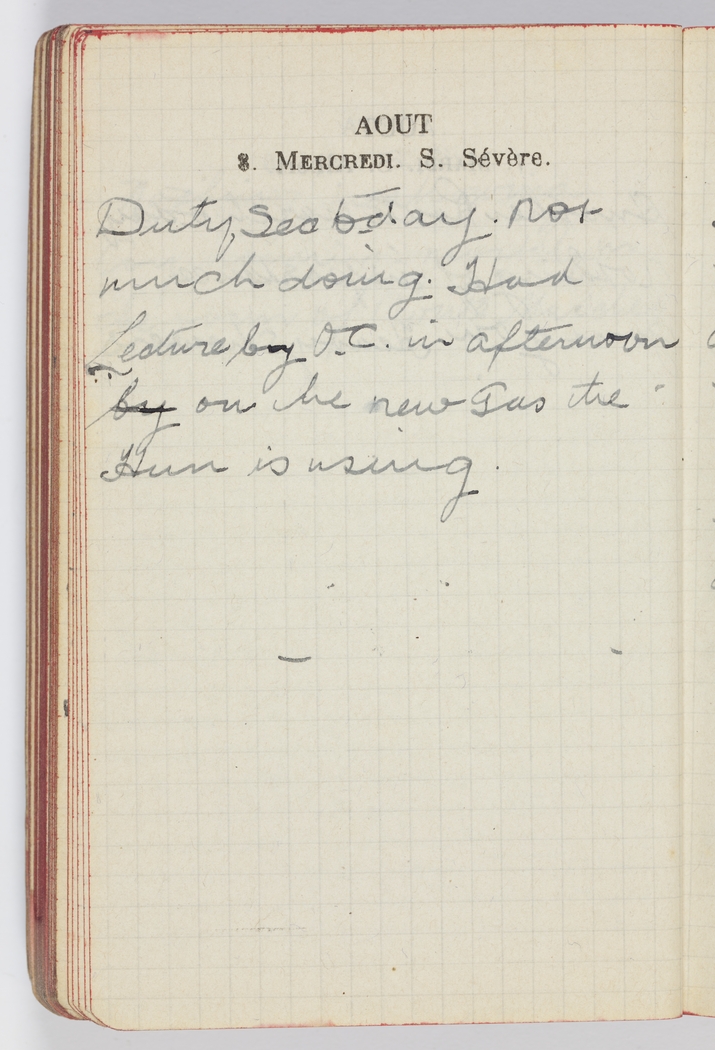 AOUT
8. MERCREDI. S. Sévère.
Duty Sec today. Not
much doing. Had
Lecture by O.C. in afternoon
by on the new Gas the
Hun is using.